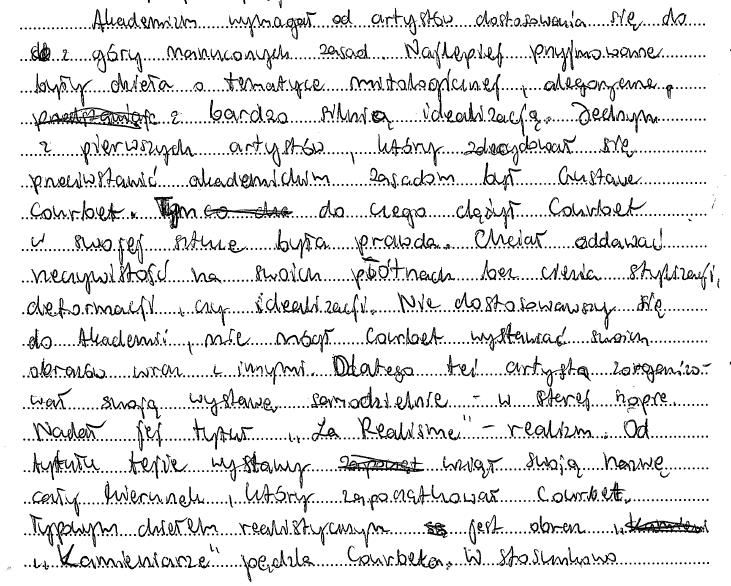 Akademizm wymagał od artystów dostosowania się do
z góry narzuconych zasad. Najlepiej przyjmowane
były dzieła o tematyce mitologicznej, alegoryczne,
z bardzo silnią idealizacją. Jednym
z pierwszych artystów, który zdecydował się
przeciwstawić akademickim zasadom był Gustave
Courbet. Tym do czego dążył Courbet
w swojej sztuce była prawda. Chciał oddawać
rzeczywistość na swoich płótnach bez cienia stylizacji,
deformacji, czy idealizacji. Nie dostosowawszy się
do Akademii, nie mógł Courbet wystawiać swoich
obrazów wraz z innymi. Dlatego też artysta zorganizo-
wał swoją wystawę samodzielnie - w starej
Nadał jej tytuł „La Realisme" - realizm. Od
tytułu tejże wystawy wziął swoją nazwę
cały kierunek, który zapoczątkował Courbet.
Typowym dziełem realistycznym jest obraz
„Kamieniarze" pędzla Courbeta. W stosunkowo